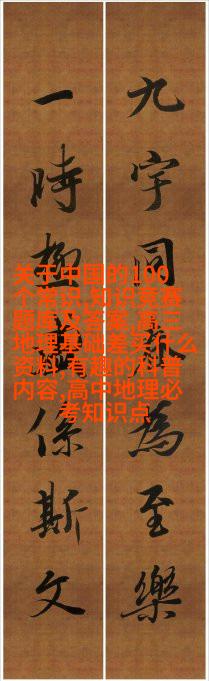 九宇同為至樂
一時極係斯文
关于中国的100
个常识,知识竞赛
题库及答案,高三
地理基础差买什么
资料,有趣的科普
内容,高中地理必
考知识点